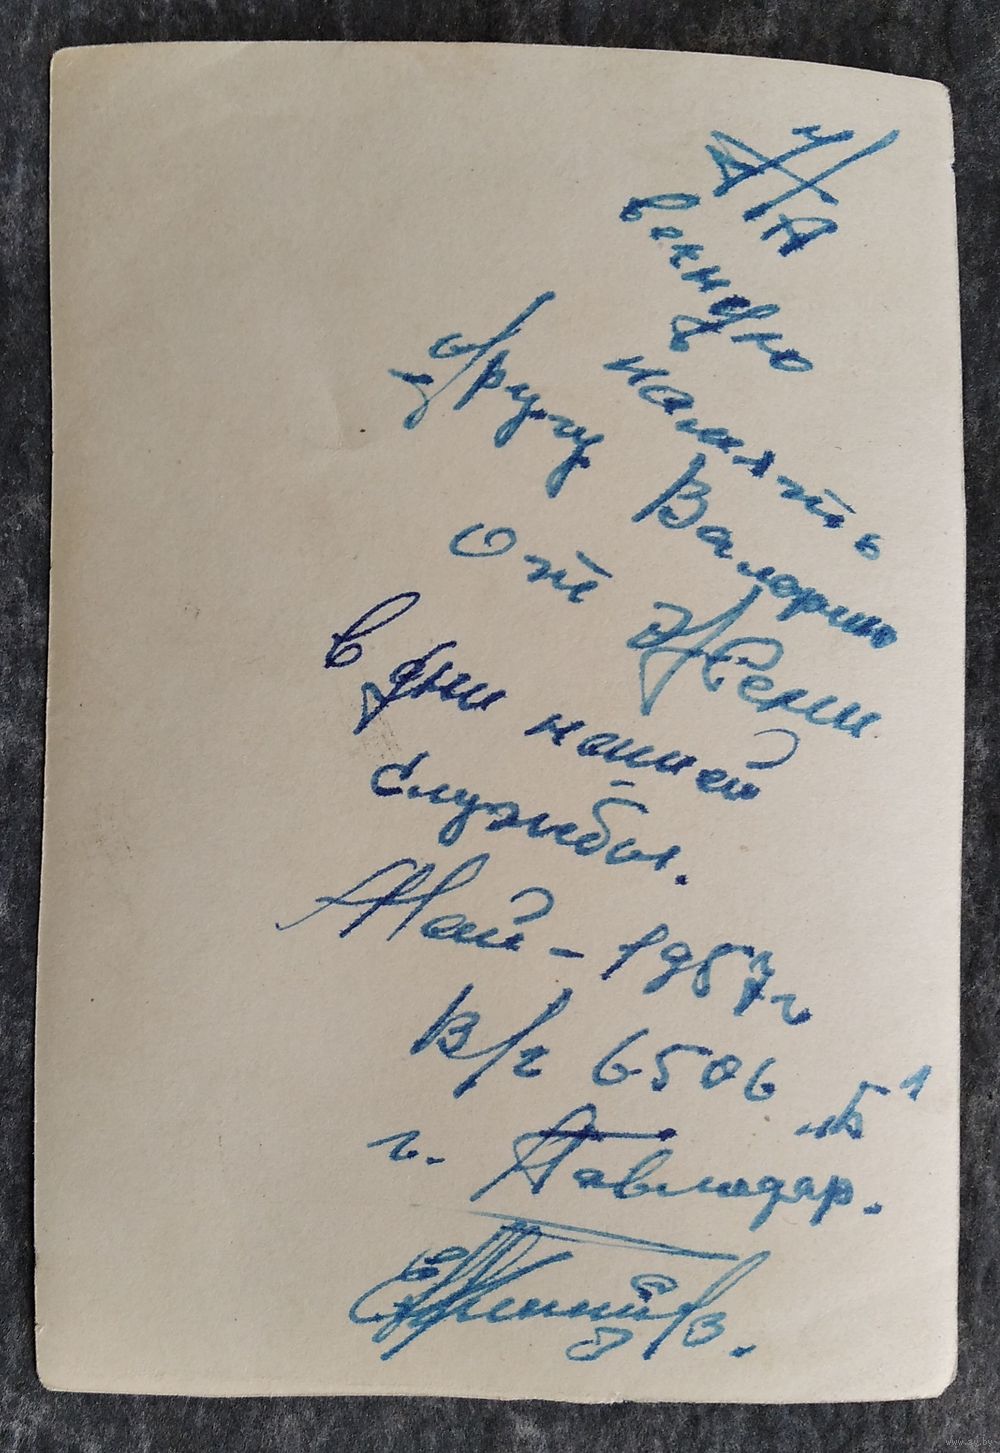 На
вечную
память
другу Валерию
от Жени
в дни нашей
службы.
Май - 1957г
в/ч 6506 „Б"
г. Павлодар.
www.ay.by